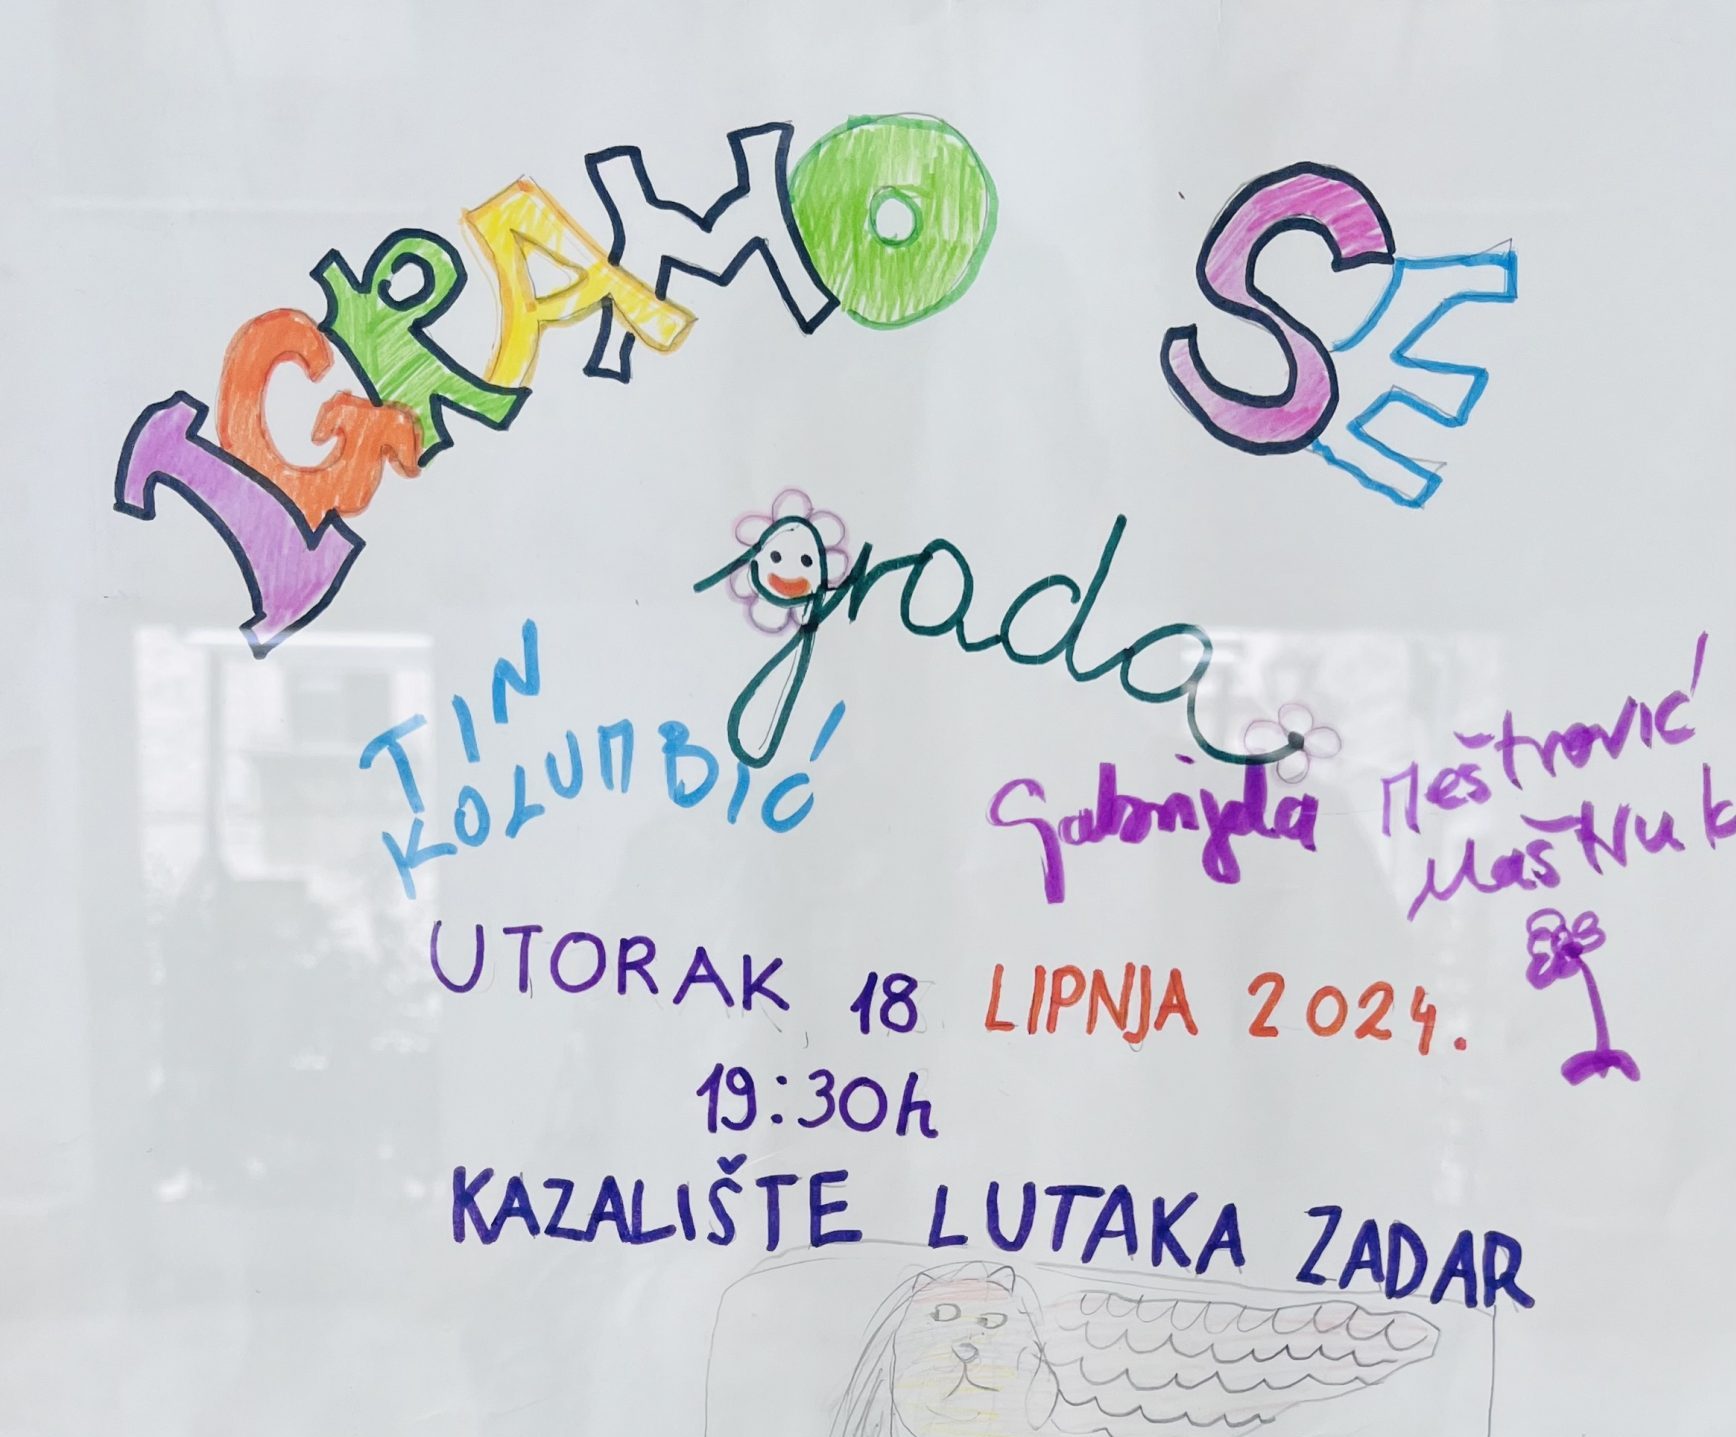 IGRAMO SE
grada
TIN
KOLUMBIĆ
Gabrijela Meštrović
Maštruk
UTORAK 18 LIPNJA 2024.
19:30h
KAZALIŠTE LUTAKA ZADAR